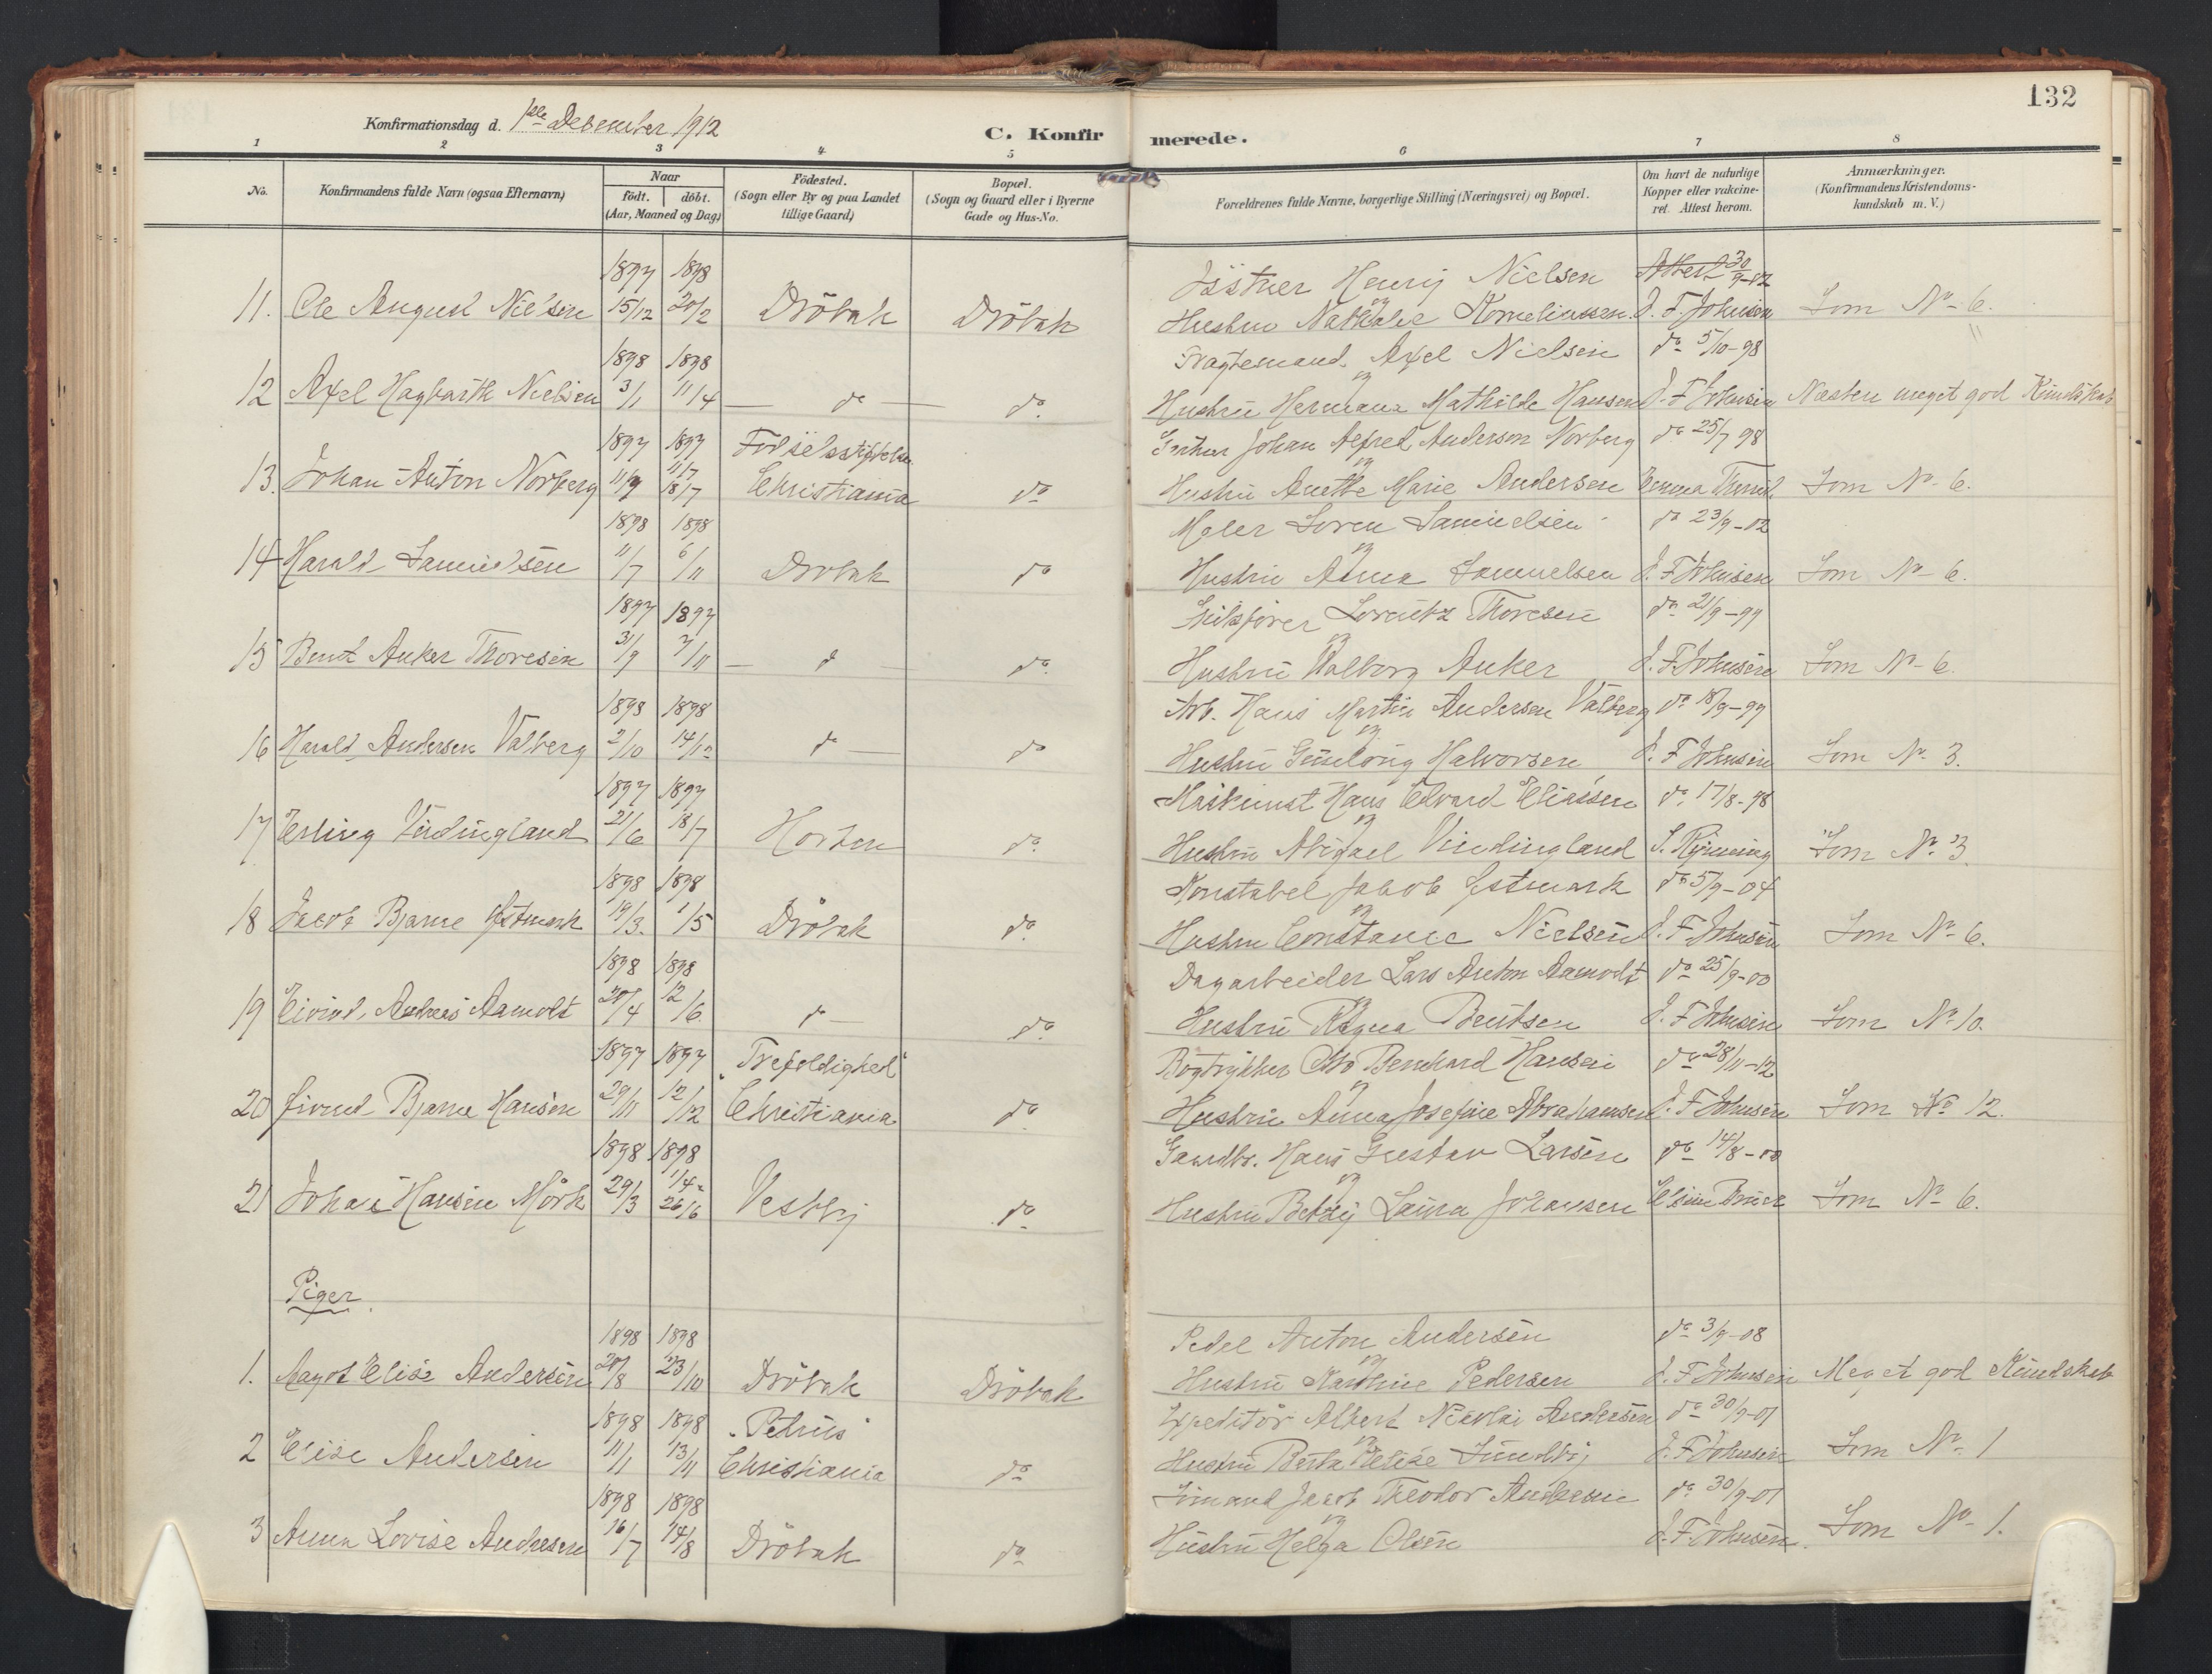 132
Konfirmationsdag d. 1ste December 1912
C. Konfirmerede.
1 2 3 4 5 6 7 8
No. Konfirmandens fulde Navn (ogsaa Efternavn) Naar födt. döbt. (Aar, Maaned og Dag) Födested. (Sogn eller By og paa Landet tillige Gaard) Bopæl. (Sogn og Gaard eller i Byerne Gade og Hus-No. Forældrenes fulde Navne, borgerlige Stilling (Næringsvei) og Bopæl. Om havt de naturlige Kopper eller vakcineret. Attest herom. Anmærkninger. (Konfirmandens Kristendomskundskab m. V.)
1897 1898 Henrij Nielsen Attest 30/9-02
11. Ole August Nielsen 15/12 20/2 Dröbak Dröbak og Hustru Nathalie Korneliussen J. F. Johnsen Som No 6.
1898 1898 Fragtemand Axel Nielsen do 5/10-98
12 Axel Hagbarth Nielsen 3/1 11/4 do do og Hustru Hermana Mathilde Hansen J. F. Johnsen Næsten meget god Kundskab
1897 1897 Födselsstiftelsen Johan Alfred Anderson Norberg do 25/7 98
13. Johan Anton Norberg 11/7 18/7 Christiania do og Hustru Anette Marie Andersen Som No 6.
1898 1898 Maler Soren Samuelsen do 23/9-02
14 Harald Samuelsen 11/7 6/11 Dröbak do og Hustru Anna Samuelsen J. F. Johnsen Som No 6.
1897 1897 Skibsförer Lorentz Thoresen do 21/9-99
15 Bernt Anker Thoresen 31/9 7/11 do do og Hustru Valborg Anker J. F. Johnsen Som No 6.
1898 1898 Arb. Hans Martin Andersen Valberg do 18/9-99
16 Harald Andersen Valberg 2/10 14/12 do do og Hustru Halvorsen J. F. Johnsen Som No 3.
1897 1897 Maskinist Hans Edvard Eliassen do 17/8-98
17 Erling Vindingland 21/6 18/7 Horten do og Hustru Abigael Vindingland Som No 3.
1898 1898 Konstabel Jakob Östmark do 5/9-04
18 Jacob Bjarne Östmark 19/3. 1/5 Dröbak do og Hustru Constance Nielsen J. F. Johnsen Som No 6.
1898 1898 Dagarbeider Lars Anton Aamodt do 25/9-00
19 Eivind Andreas Aamodt 20/4 12/6. do do og Hustru Ragna Bentsen J. F. Johnsen Som No 10.
1897 1897 "Trefoldighed" Bogtrykker Otto Bernhard Hansen do 28/11-12
20 Öivind Bjarne Hansen 29/11 12/12 Christiania do og Hustru Anna Josefine Abrahamsen J. F. Johnsen Som No 12.
1898 1898 Gaardbr. Hans Gustav Larsen do 14/8-00
21 Johan Hansen Mörk 29/3 1/4- 26/6 Vestby do og Hustru Betsy Laura Johansen Som No 6.
Piger.
1898 1898 Pedel Anton Andersen do 3/9-08
1. Magot Elise Andersen 20/8 23/10 Dröbak Dröbak og Hustru Karoline Pedersen J. F. Johnsen Meget god Kundskab
1898 1898 "Petrus" Expeditör Albert Nicolai Andersen do 30/9-01
2 Elise Andersen 11/1 13/11 Christiania do og Hustru Berta Elise Sundby J. F. Johnsen Som No 1
1898 1898 Sömand Jacob Theodor Andresen do 30/9-01
3 Anna Lovise Andresen 16/7 14/8 Dröbak do og Hustru Helga Olsen J. F. Johnsen. Som No 1.